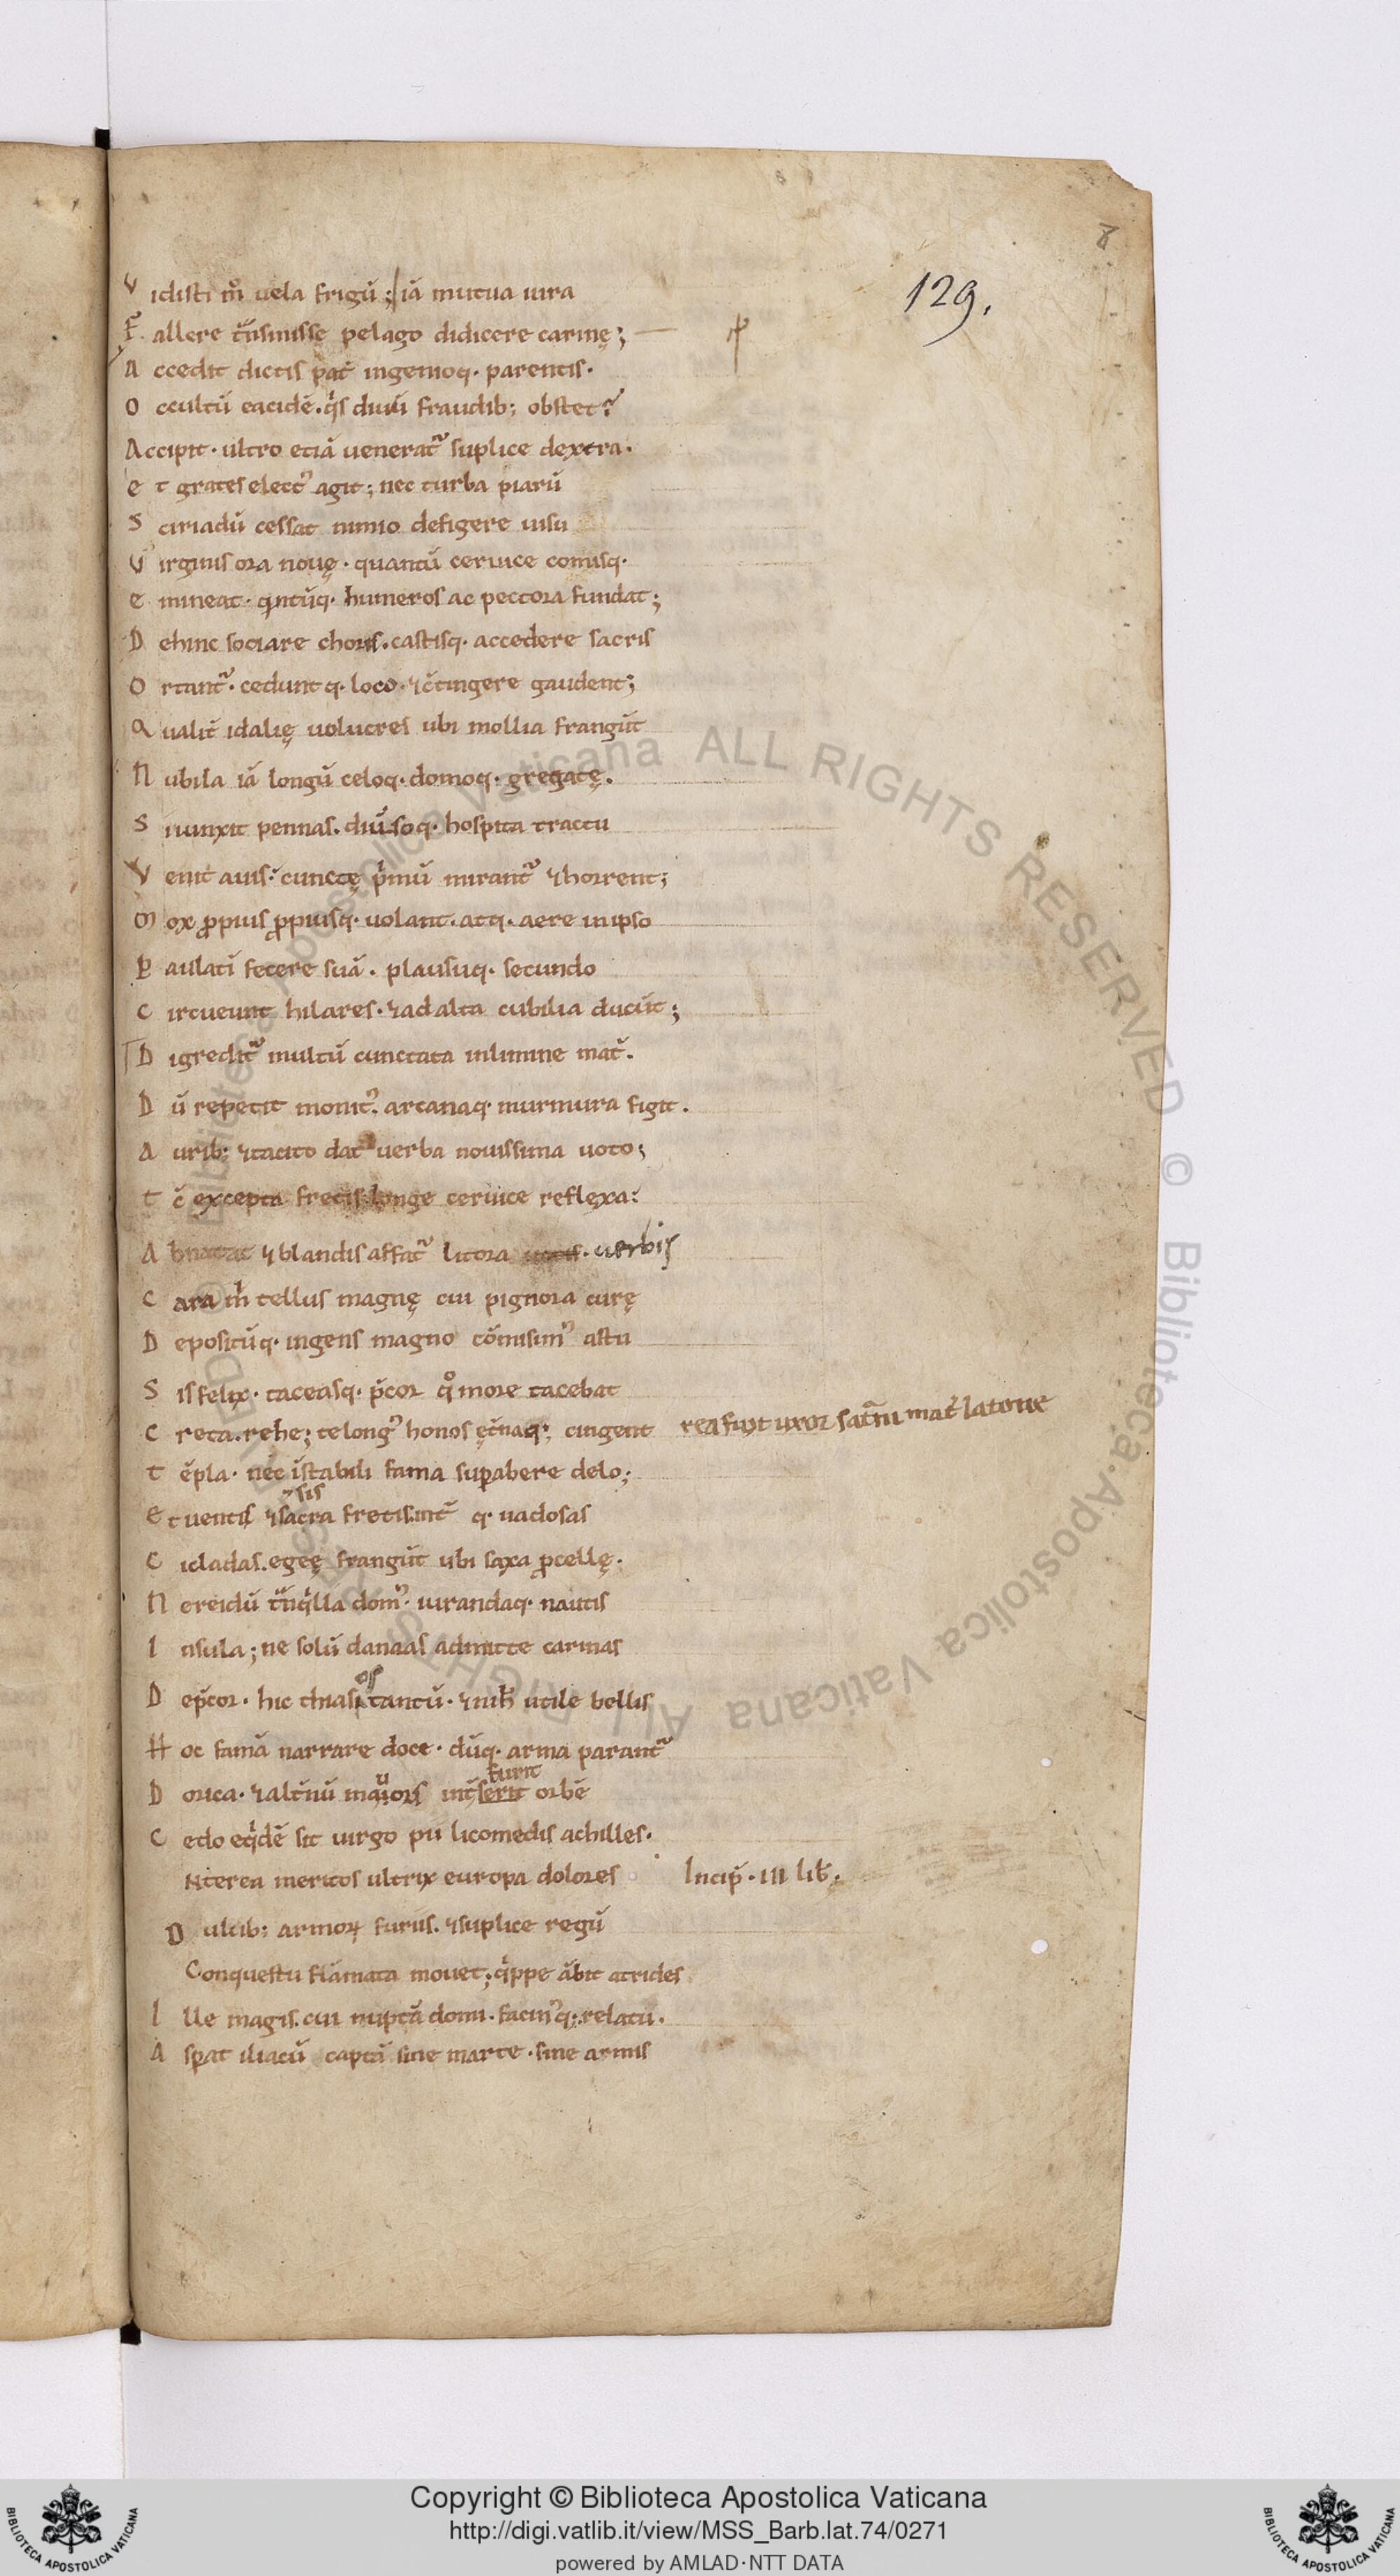 129.
V idisti m̊ vela frigū ; iā mutua iura
F allere t̃nsmisse pelago didicere carinę ;
A ccedit dictis pat̃ ingenioq. parentis.
O ccultū eacidē. q̓s diuū fraudib; obstet?
A ccipit. ultro etiā uenerat᷑ suplice dextra.
e t grates elect᷒ agit ; nec turba piarū
S ciriadū cessat nimio defigere uisu
V irginis ora nouę. quantū ceruice comisq.
e mineat. q̃ntūq. humeros ac pectora fundat ;
D ehinc sociare choris. castisq. accedere sacris
O rtant᷑. cedunt q. loco. ⁊ c̄tingere gaudent ;
Q ualit̃ idalię uolucres ubi mollia frangūt
N ubila iā longū celoq. domoq. gregatę.
S iiunxit pennas. diũsoq. hospita tractu
V enit auis. cunctę p̓mū mirant᷑ ⁊ horrent ;
M ox ꝓpius ꝓpiusq. uolant. atq. aere in ipso
P aulatī fecere suā. plausuq. secundo
C ircueunt hilares. ⁊ ad alta cubilia ducūt ;
D igredit᷑ multū cunctata in limine mat̃.
D ū repetit monit᷒. arcanaq. murmura figit.
A urib; ⁊ tacito dat uerba nouissima uoto ;
t c̄ excepta fretis longe ceruice reflexa :
A bnatat ⁊ blandis affat᷑ litora . verbis
C ara m̓ tellus magnę cui pignora curę
D epositūq. ingens magno cōmisim᷒ astu
S is felix. taceasq. p̃cor q̊ more tacebat
C reta. rehe ; te long᷒ honos ęt̃naq ; cingent rea fuit uxor sat̃ni mat̃ latone
t ēpla. nec īstabili fama suꝑabere delo ;
sis
E t uentis ⁊ sacra fretis. int̃ q. uadosas
C icladas. egeę frangūt ubi saxa ꝓcellę.
N ereidū t̃nq̓lla dom᷒. iurandaq. nautis
I nsula ; ne solū danaas admitte carinas
os
D ep̃cor. hic thiasi tantū. ⁊ nih̄ utile bellis
H oc famā narrare doce. dūq. arma parant᷑
furit
D orica. ⁊ alt̃nū mauors int̃serit orbē
C edo eq̓dē sit uirgo pii licomedis achilles.
Nterea meritos ultrix europa dolores Incip̃. III lib̄.
D ulcib; armoꝝ furiis. ⁊ suplice regū
Conquestu flāmata mouet ; q̓ppe ābit atrides
I lle magis. cui nuptā domi. facin᷒q. relatu.
A sꝑat iliacū captā sine marte. sine armis
Copyright © Biblioteca Apostolica Vaticana
http://digi.vatlib.it/view/MSS_Barb.lat.74/0271
powered by AMLAD·NTT DATA